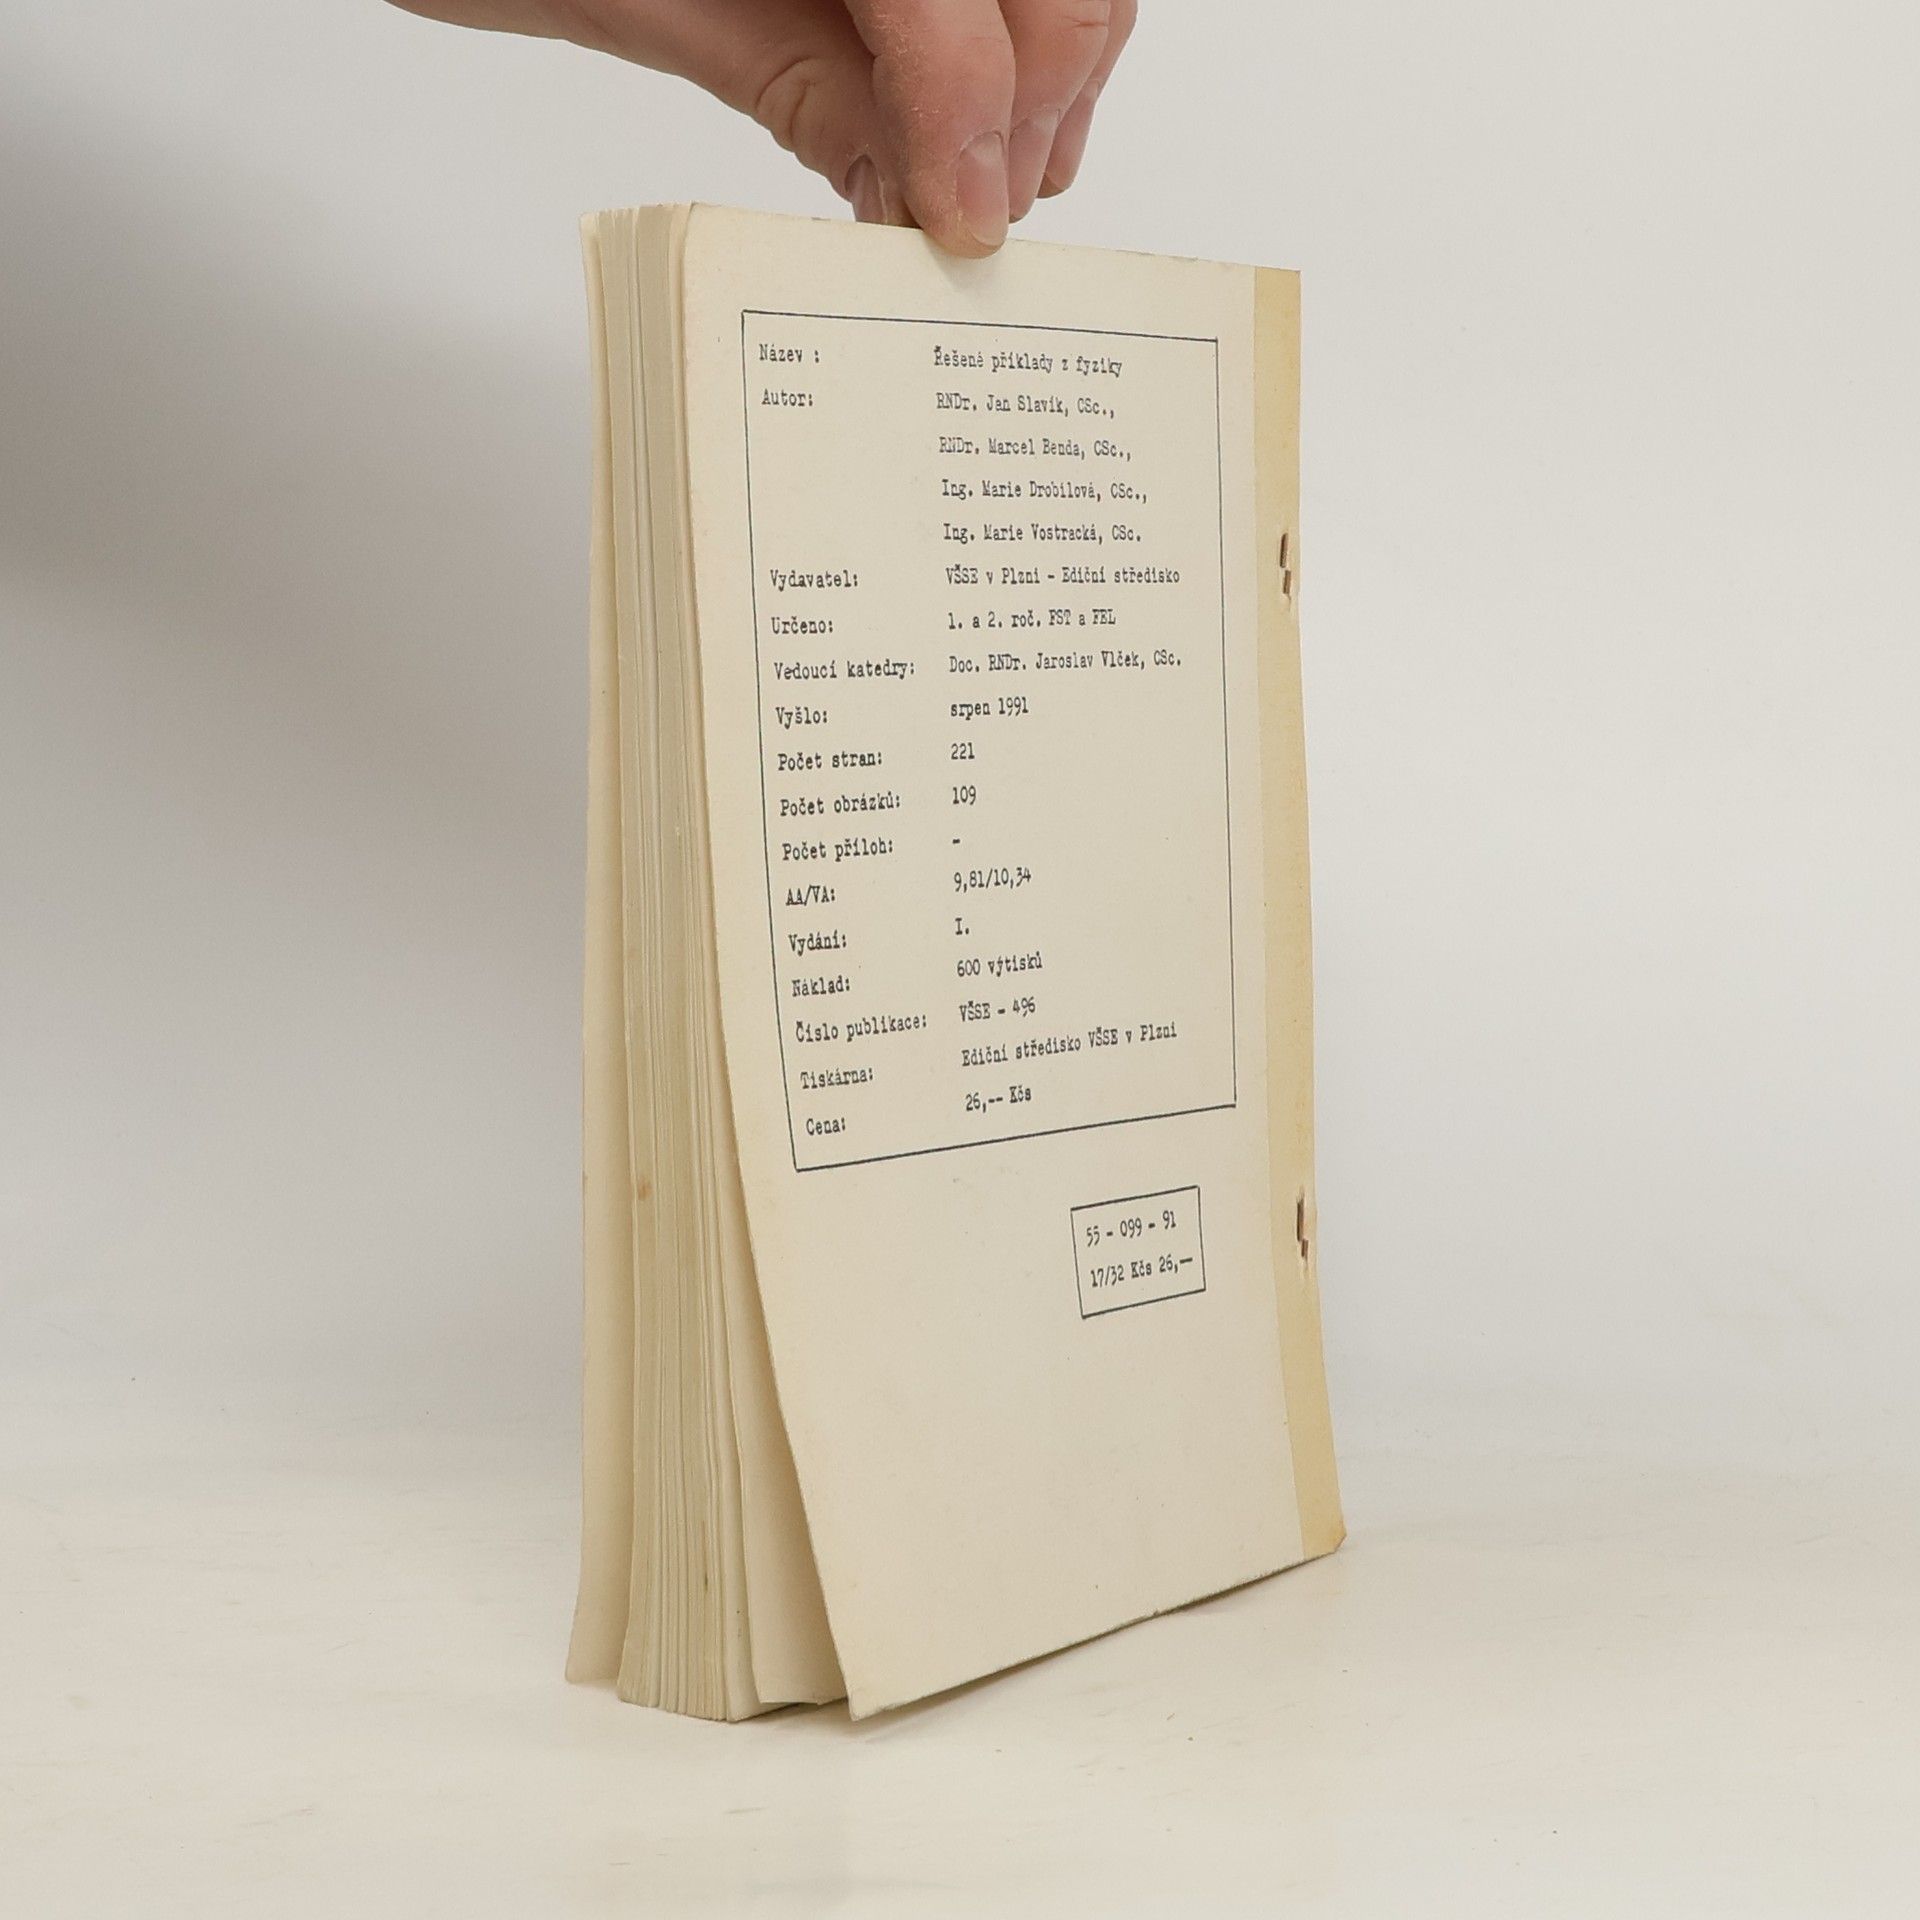 Název : Řešené příklady z fyziky
Autor: RNDr. Jan Slavík, CSc.,
RNDr. Marcel Benda, CSc.,
Ing. Marie Drobilová, CSc.,
Ing. Marie Vostracká, CSc.
Vydavatel: VŠSE v Plzni - Ediční středisko
Určeno: 1. a 2. roč. FST a FEL
Vedoucí katedry: Doc. RNDr. Jaroslav Vlček, CSc.
Vyšlo: srpen 1991
Počet stran: 221
Počet obrázků: 109
Počet příloh: -
AA/VA: 9,81/10,34
Vydání: I.
Náklad: 600 výtisků
Číslo publikace: VŠSE - 496
Tiskárna: Ediční středisko VŠSE v Plzni
Cena: 26,-- Kčs
55 - 099 - 91
17/32 Kčs 26,--